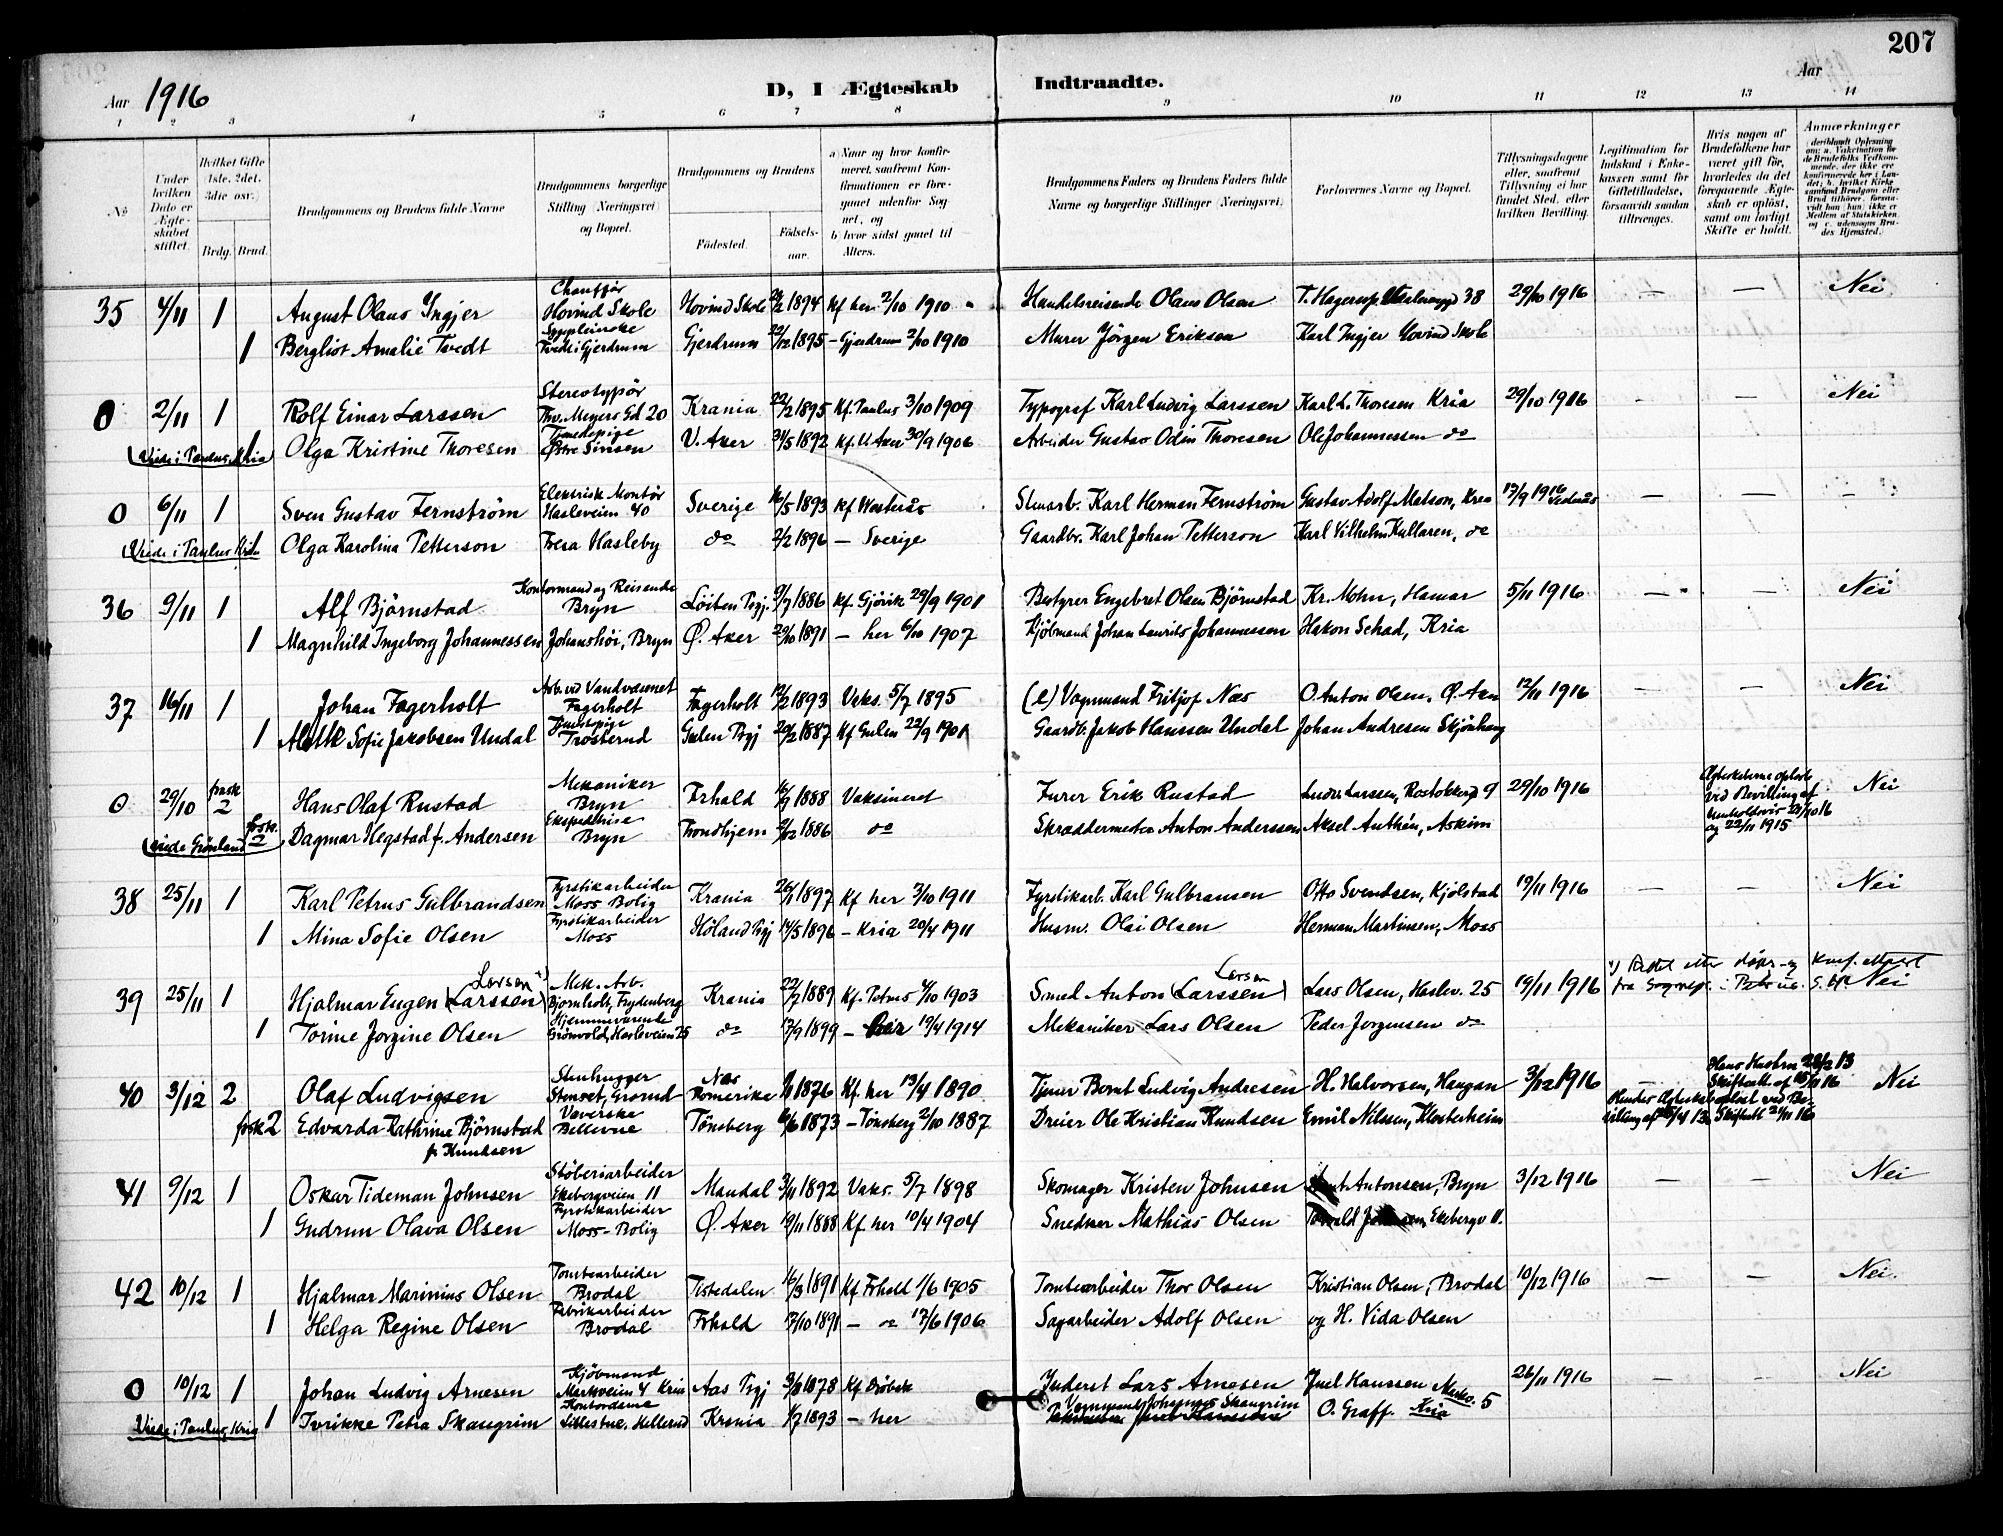 207
Aar 1916 D, I Ægteskab Indtraadte. Aar
1 2 3 4 5 6 7 8 9 10 11 12 13 14
No
Under hvilken Dato er Ægteskabet stiftet.
Hvilket Gifte (1ste, 2det, 3die osv.)
Brdg. Brud.
Brudgommens og Brudens fulde Navne
Brudgommens borgerlige Stilling (Næringsvei) og Bopæl.
Brudgommens og Brudens
Födested. Födselsaar.
a) Naar og hvor konfirmeret, saafremt Konfirmationen er foregaaet udenfor Sognet, og
b) hvor sidst gaaet til Alters.
Brudgommens Faders og Brudens Faders fulde Navne og borgerlige Stillinger (Næringsvei)
Forlovernes Navne og Bopæl.
Tillysningsdagene eller, saafremt Tillysning ei har fundet Sted, efter hvilken Bevilling.
Legitimation for Indskud i Enkekassen samt for Giftetilladelse, forsaavidt saadan tiltrænges.
Hvis nogen af Brudefolkene har været gift för, hvorledes da det foregaaende Ægteskab er oplöst, samt om lovligt Skifte er holdt.
Anmærkninger
35 4/11 1 August Olaus Ingjer Chauffør Hovind Skole Hovind Skole 1894 Kf her 2/10 1910 Handelsreisende Olaus Olsen T. Hagerup, 38 29/10 1916 — — Nei
1 Bergliot Amalie Tvedt Tvedt i Gjerdrum Gjerdrum 22/12 1895 – Gjerdrum 2/10 1910 Murer Jörgen Eriksen Karl Ingjer Hovind Skole
0 2/11 1 Rolf Einar Larssen Stereotypør Thv. Meyers Gd 20 Krania 22/2 1895 Kf. Paulus 3/10 1909 Typograf Karl Ludvig Larssen Karl L. Thoresen Kria 29/10 1916 - — Nei
(Viede i Paulus, Kria 1 Olga Kristine Thoresen Tjenestepige Østre Sinsen V. Aker 31/5 1892 Kf. V. Aker 30/9 1906 Arbeider Gustav Odin Thoresen Ole Johannessen do
0 6/11 1 Sven Gustav Fernström Elektrisk Montör Hasleveien 40 Sverige 16/5 1893 Kf Westerås Stenarb. Karl Herman Fernström Gustav Adolf Matson, Kria 17/9 1916 Vesterås — — -
(Viede i Paulus Kria Olga Karolina Petterson Hasleby do 2/2 1896 — Sverige Gaardbr. Karl Johan Petterson Karl Vilhelm Kullaren, do
36 9/11 1 Alf Björnstad Kontormand og Reisende Bryn Löiten Pgj. 9/7 1886 Kf. Gjövik 29/9 1901 Bestyrer Engebret Olsen Björnstad Kr. Mohn, Hamar 5/11 1916 — — Nei
1 Magnhild Ingeborg Johannessen Johanshöi, Bryn Ø. Aker 29/10 1891 — her 6/10 1907 Kjöbmand Johan Laurits Johannessen Hakon Schad, Kria
37 16/11 1 Johan Fagerholt Arb. ved Vandværnet Fagerholt Fagerholt 12/2 1893 Vaks. 5/7 1895 Vognmand Fritjof Næs O. Anton Olsen, Ø. Aker 12/11 1916 — — Nei
1 Sofie Jakobsen Undal Tjenestepige Trosterud Gulen Pgj 20/2 1887 Kf Gulen 22/9 1901 Gaardb. Jakob Hanssen Undal Johan Andresen Skjönhaug
0 29/10 frask 2 Hans Olaf Rustad Mekaniker Bryn Frhald 16/9 1888 Vaksineret Furer Erik Rustad Larssen, 9 29/10 1916 Ægteskaberne oplöste ved Bevilling af 21/10 16 og 22/11 1915 Nei
(viede Grønland frsk. 2 Dagmar Hegstad f. Andersen Ekspeditrice Bryn Trondhjem 2/12 1886 do Skræddermester Anton Anderssen Aksel Anthén, Askim
38 25/11 1 Karl Petrus Gulbrandsen Fyrstikarbeider Moss Bolig Krania 26/1 1897 Kf her 3/10 1911 Fyrstikarb. Karl Gulbransen Otto Svendsen, Kjölstad 19/11 1916 — — Nei
1 Mina Sofie Olsen Fyrstikarbeider Moss Høland Pgj 14/5 1896 – Kria 20/4 1911 Husm. Olai Olsen Herman Martinsen, Moss
39 25/11 1 Hjalmar Eugen (Larssen) Larsen Mek. Arb. Bjørnholt, Frydenberg Krania 22/7 1889 Kf. Petrus 4/10 1903 Smed Anton (Larssen) Larsen Lars Olsen, Haslev. 25 19/11 1916 Rettet efter dåps- og konf. attest fra Sognepr. i Petrus Nei
1 Torine Jorgine Olsen Hjemmeværende Grönvold, Hasleveien 25 do 17/9 1899 – her 19/4 1914 Mekaniker Lars Olsen Peder Jorgensen do
40 3/12 2 Olaf Ludvigsen Stenhugger Stenset, Grorud Næs Romerike 1/1 1876 Kf. her 13/4 1890 Tjener Bernt Ludvig Andresen H. Halvorsen, Haugan 3/12 1916 — Hans Hustru 22/2 13 Skifteatt af 18/11 16 Nei
frsk 2 Edvarda Kathrine Björnstad f. Knudsen Væverske Bellevue Tönsberg 6/6 1873 – Tönsberg 2/10 1887 Dreier Ole Kristian Knudsen Emil Nilssen, Klosterheim Hendes Ægteskab oplöst ved Bevilling af 25/4 13, Skifteatt 2/11 16
41 9/12 1 Oskar Tideman Johnsen Støberiarbeider Ekebergveien 11 Mandal 3/11 1892 Vaks. 5/7 1898 Skomager Kristen Johnsen Antonsen, Bryn 3/12 1916 — — Nei
1 Gudrun Olava Olsen Fyrstikarbeider Moss-Bolig Ø. Aker 19/11 1888 Kf her 10/4 1904 Snedker Mathias Olsen Torvald Johnsen, Ekebergv 11.
42 10/12 1 Hjalmar Marinius Olsen Tomtearbeider Brodal Tistedalen 16/3 1891 Kf Frhald 1/6 1905 Tomtearbeider Thor Olsen Kristian Olsen, Brodal 10/12 1916 — — Nei.
1 Helga Regine Olsen Fabrikarbeider Brodal Frhald 7/10 1891 — do 17/6 1906 Sagarbeider Adolf Olsen og H. Vida Olsen
0 10/12 1 Johan Ludvig Arnesen Kjöbmand Markveien 4 Kria Aas Pgj 1878 Kf Dröbak Inderst Lars Arnesen Juel Hanssen Markv. 5 26/11 1916 — — Nei
Viede i Paulus, Kria 1 Tvrikke Petra Skaugrim Kontordame Lillestue, Hellerud Krania 1/7 1893 – her Vognmand Johannes Skaugrim O. Graff. Kria